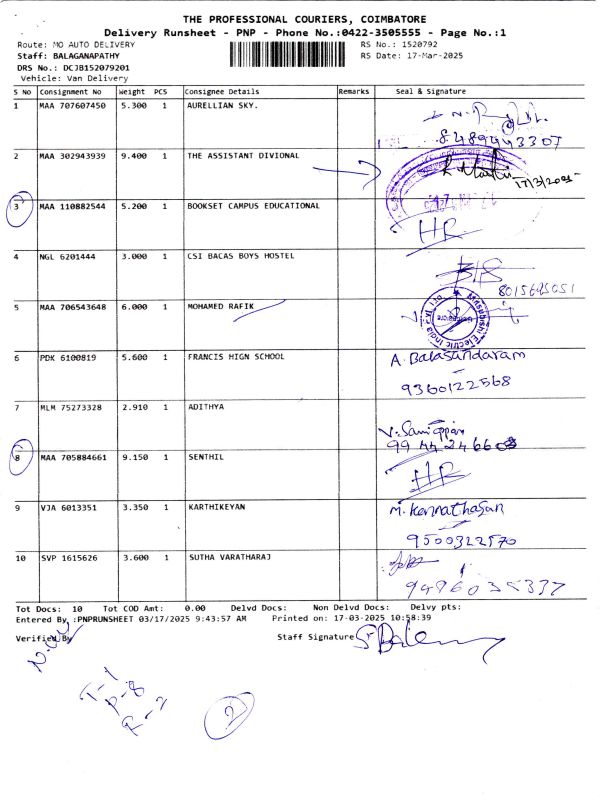 THE PROFESSIONAL COURIERS, COIMBATORE
Delivery Runsheet - PNP - Phone No.:0422-3505555 - Page No.:1
Route: MO AUTO DELIVERY RS No.: 1520792
Staff: BALAGANAPATHY RS Date: 17-Mar-2025
DRS No.: DCJB152079201
Vehicle: Van Delivery
S No Consignment No Weight PCS Consignee Details Remarks Seal & Signature
1 MAA 707607450 5.300 1 AURELLIAN SKY.
8489443307
2 MAA 302943939 9.400 1 THE ASSISTANT DIVIONAL
3 MAA 110882544 5.200 1 BOOKSET CAMPUS EDUCATIONAL
HR
4 NGL 6201444 3.000 1 CSI BACAS BOYS HOSTEL
8015695051
5 MAA 706543648 6.000 1 MOHAMED RAFIK
6 PDK 6100819 5.600 1 FRANCIS HIGH SCHOOL A. Balasundaram
9360122568
7 MLM 75273328 2.910 1 ADITHYA
99 44 246608
8 MAA 705884661 9.150 1 SENTHIL
HR
9 VJA 6013351 3.350 1 KARTHIKEYAN M. Kennathasan
9500322570
10 SVP 1615626 3.600 1 SUTHA VARATHARAJ
9496035337
Tot Docs: 10 Tot COD Amt: 0.00 Delvd Docs: Non Delvd Docs: Delvy pts:
Entered By :PNPRUNSHEET 03/17/2025 9:43:57 AM Printed on: 17-03-2025 10:58:39
Verified By Staff Signature
T-1
P-8
R-2
2